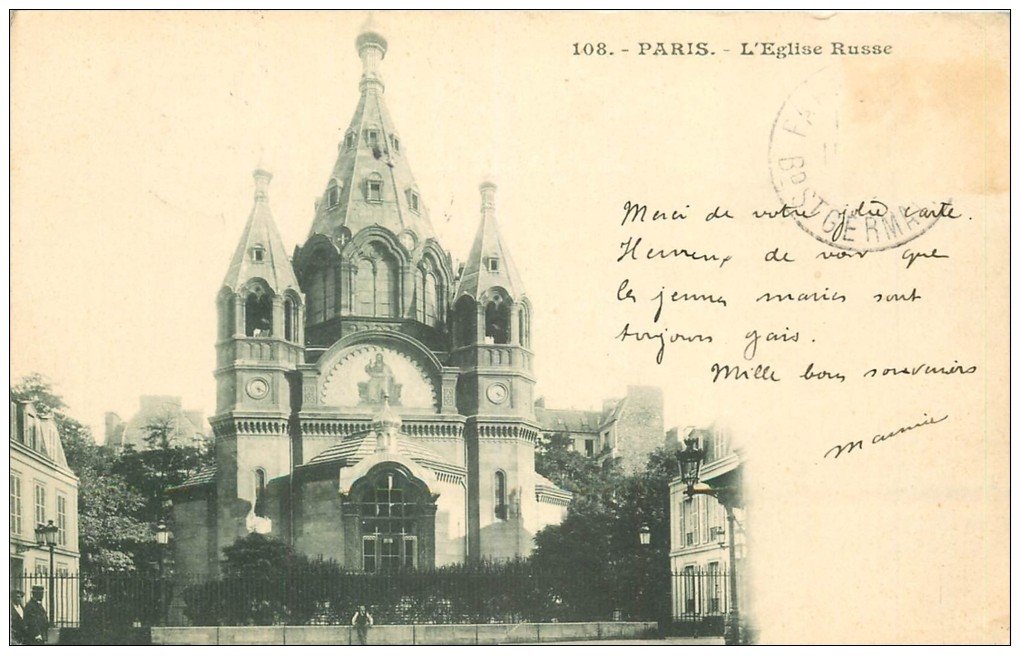 108. - PARIS. - L'Eglise Russe
Bd ST GERMA
Merci de votre jolie carte.
Heureux de voir que
les jeunes mariés sont
toujours gais.
Mille bons souvenirs